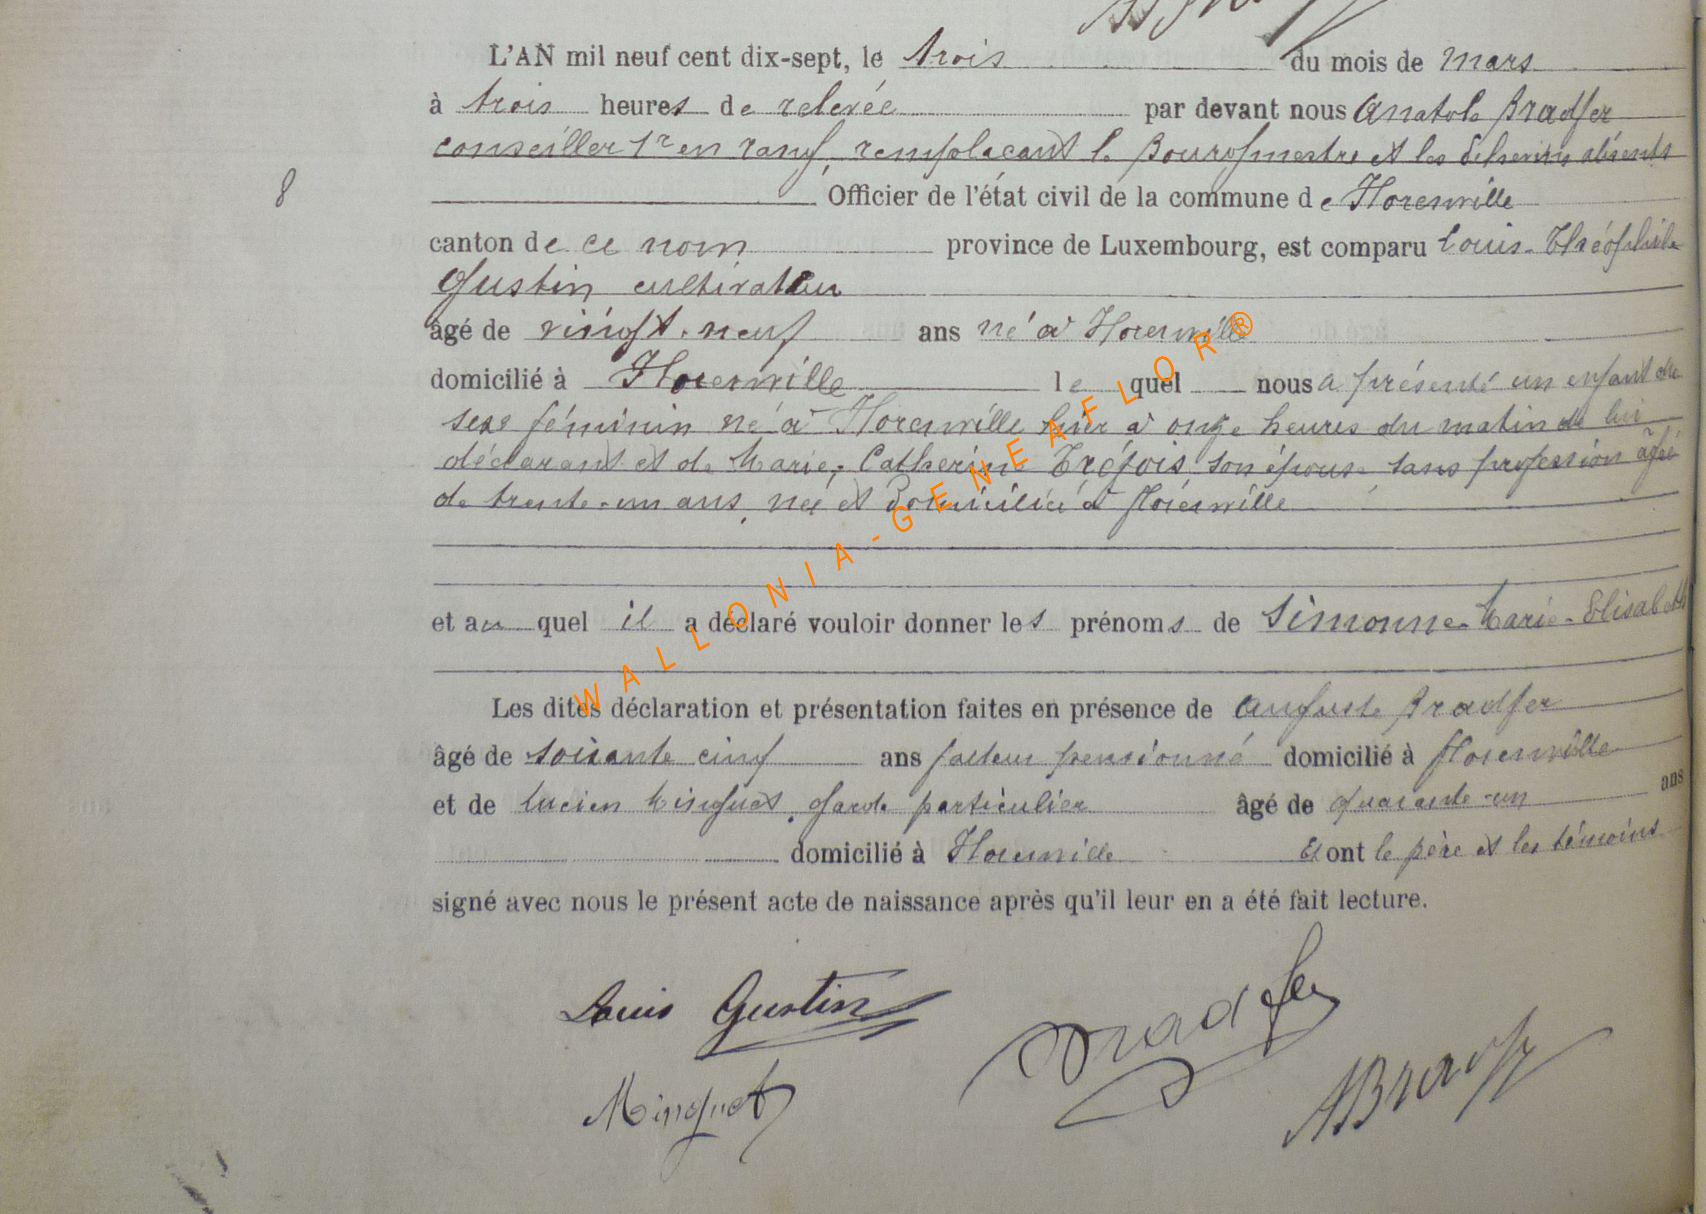 L'AN mil neuf cent dix-sept, le trois du mois de mars
à trois heures de relevée par devant nous Anatole Bradfer
conseiller 1er en rang, remplaçant le Bourgmestre et les Echevins absents
8 Officier de l'état civil de la commune de Florenville
canton de ce nom province de Luxembourg, est comparu Louis-Théophile
Gustin cultivateur
âgé de vingt-neuf ans né à Florenville
domicilié à Florenville lequel nous a présenté un enfant du
sexe féminin né à Florenville hier à onze heures du matin de lui
déclarant et de Marie, Catherine Tréfois son épouse, sans profession âgée
de trente-un ans, née et domiciliée à Florenville
et au quel il a déclaré vouloir donner les prénoms de Simonne-Marie-Elisabeth
Les dites déclaration et présentation faites en présence de Auguste Bradfer
âgé de soixante cinq ans facteur pensionné domicilié à Florenville
et de Lucien Minguet, garde particulier âgé de quarante-un ans
domicilié à Florenville Et ont le père et les témoins
signé avec nous le présent acte de naissance après qu'il leur en a été fait lecture.
Louis Gustin
Bradfer
Minguet
ABradfer
WALLONIA-GENEAFLOR®